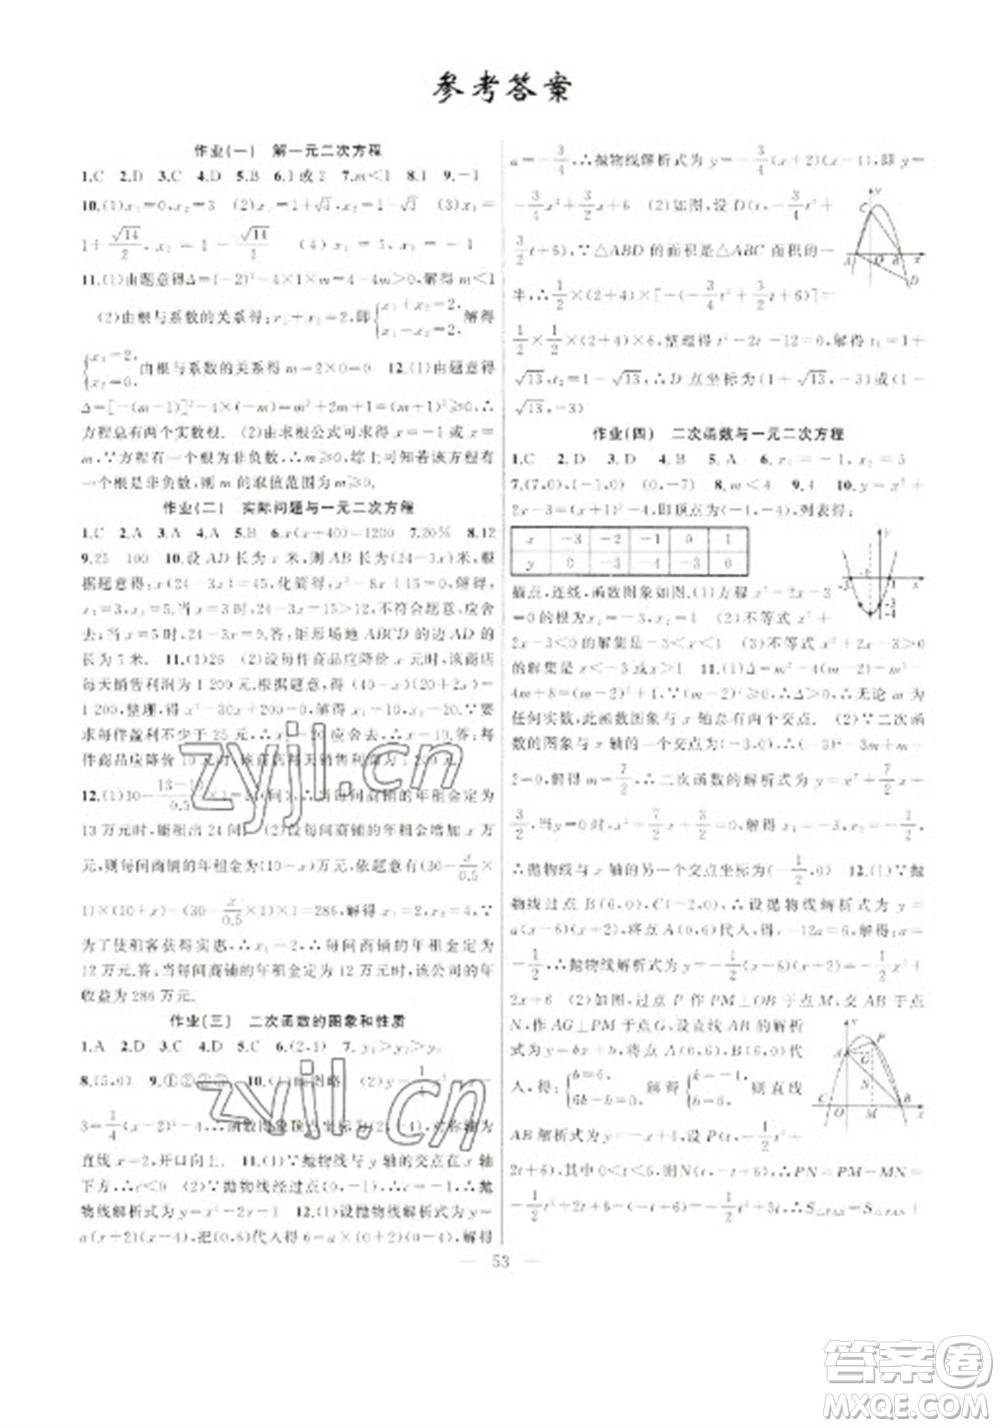 参考答案
作业(一) 解一元二次方程
1.C 2.D 3.C 4.D 5.B 6.1或2 7.m<1 8.1 9.-1
10.(1)x₁=0,x₂=3 (2)x₁=1+√3,x₂=1-√3 (3)x₁=
1+√14/2,x₂=1-√14/2 (4)x₁=x₂=-1
11.(1)由题意得Δ=(-2)²-4×1×m=4-4m>0,解得m<1
(2)由根与系数的关系得:x₁+x₂=2,即{x₁+x₂=2,x₁-x₂=2,解得
{x₁=2,x₂=0,由根与系数的关系得m=2×0=0 12.(1)由题意得
Δ=[-(m-1)]²-4×(-m)=m²+2m+1=(m+1)²≥0,∴
方程总有两个实数根. (2)由求根公式可求得x=-1或x=
m,∴若要有一个根为非负数,则m≥0,∴可知若该方程有
一个根是非负数,则m的取值范围是m≥0
作业(二) 实际问题与一元二次方程
1.C 2.A 3.A 4.A 5.C 6.x(x+40)=1200 7.20% 8.12
9.25 100 10.设AD长为x米,则AB长为(24-3x)米,
根据题意得:x(24-3x)=45,化简得:x²-8x+15=0,解得:
x₁=3,x₂=5,当x=3时,24-3x=15>12,不符合题意,应舍
去;当x=5时,24-3x=9<12;答:矩形场地ABCD的边AD的
长为5米 11.(1)26 (2)设每件商品应降价x元时,该商店
每天销售利润为1 200元.根据题意,得(40-x)(20+2x)=
1200,整理,得x²-30x+200=0,解得:x₁=10,x₂=20.∵
要求每件盈利不少于25元,∴x₂=20应舍去,∴x=10.答:每
件商品应降价10元时,该商店每天销售利润为1 200元
12.(1)30-(13-10)/0.5×1=24(间),∴当每间商铺的年租金定为
13万元时,能租出24间 (2)设每间商铺的年租金增加x万
元,则每间商铺的年租金为(10+x)万元,依题意有(30-x/0.5×
1)×(10+x)-(30-x/0.5×1)×1=286,解得x₁=2,x₂=4,∵
为了使租客获得实惠,∴x₁=2,∴每间商铺的年租金定为
12万元.答:当每间商铺的年租金定为12万元时,该公司的年
收益为286万元.
作业(三) 二次函数的图象和性质
1.A 2.D 3.C 4.C 5.D 6.(2,1) 7.y₃>y₂>y₁
8.(5,0) 10.(1)画图略 (2)y=1/4x²-x-
3=1/4(x-2)²-4,∴函数图象顶点坐标为(2,-4),对称轴为
直线x=2,开口向上. 11.(1)∵抛物线与y轴的交点在x轴
下方,∴c<0 (2)∵抛物线经过点(0,-1),∴c=-1,∴抛
物线解析式为y=x²-2x-1 12.(1)设抛物线解析式为y=
a(x+2)(x-4),把(0,6)代入得6=a×(0+2)×(0-4),解得
a=-3/4,∴抛物线解析式为y=-3/4(x+2)(x-4),即y=
-3/4x²+3/2x+6 (2)如图,设D(t,-3/4t²+
3/2t+6),∵△ABD的面积是△ABC面积的一
半,∴1/2×(2+4)×[-(-3/4t²+3/2t+6)]=
1/2×1/2×(2+4)×6,整理得t²-2t-12=0,解得t₁=1+
√13,t₂=1-√13(舍去),∴D点坐标为(1+√13,-3)
作业(四) 二次函数与一元二次方程
1.C 2.D 3.D 4.B 5.A 6.x₁=-1,x₂=5
7.(7,0),(-1,0) (0,-7) 8.m<2 9.4 10.y=x²+
2x-3=(x+1)²-4,即顶点为(-1,-4),列表得:
x -3 -2 -1 0 1
y 0 -3 -4 -3 0
描点、连线,函数图象如图.(1)方程x²+2x-3
=0的解是x₁=-3,x₂=1 (2)不等式x²+
2x-3<0的解集是-3<x<1 (3)不等式x²+2x-3>0
的解集是x<-3或x>1 11.(1)Δ=m²-4(m-2)=m²
-4m+8=(m-2)²+4,∵(m-2)²+4>0,∴无论m为
任何实数,此函数图象与x轴总有两个交点. (2)∵二次函
数的图象与x轴的一个交点为(-3,0),∴(-3)²-3m+m-2=0,
解得m=7/2,∴二次函数的解析式为y=x²+7/2x+
3/2,当y=0时,x²+7/2x+3/2=0,解得x₁=-3,x₂=-1/2,
∴抛物线与x轴的另一个交点坐标为(-1/2,0) 12.(1)∵抛
物线过点B(6,0),C(-2,0),∴设抛物线解析式为y=
a(x-6)(x+2),将点A(0,6)代入,得:-12a=6,解得:a=
-1/2,∴抛物线解析式为y=-1/2(x-6)(x+2)=-1/2x²+
2x+6 (2)如图,过点P作PM⊥OB于点M,交AB于点
N,作AG⊥PM于点G,设直线AB的解析
式为y=kx+b,将点A(0,6),B(6,0)代
入,得:{b=6,6k+b=0,解得:{k=-1,b=6,则直线
AB解析式为y=-x+6,设P(t,-1/2t²+
2t+6),其中0<t<6,则N(t,-t+6),∴PN=PM-MN=
-1/2t²+2t+6-(-t+6)=-1/2t²+3t,∴S△PAB=S△PAN+
53
zyjl.cn
zyjl.cn
答案圈
MXQE.COM